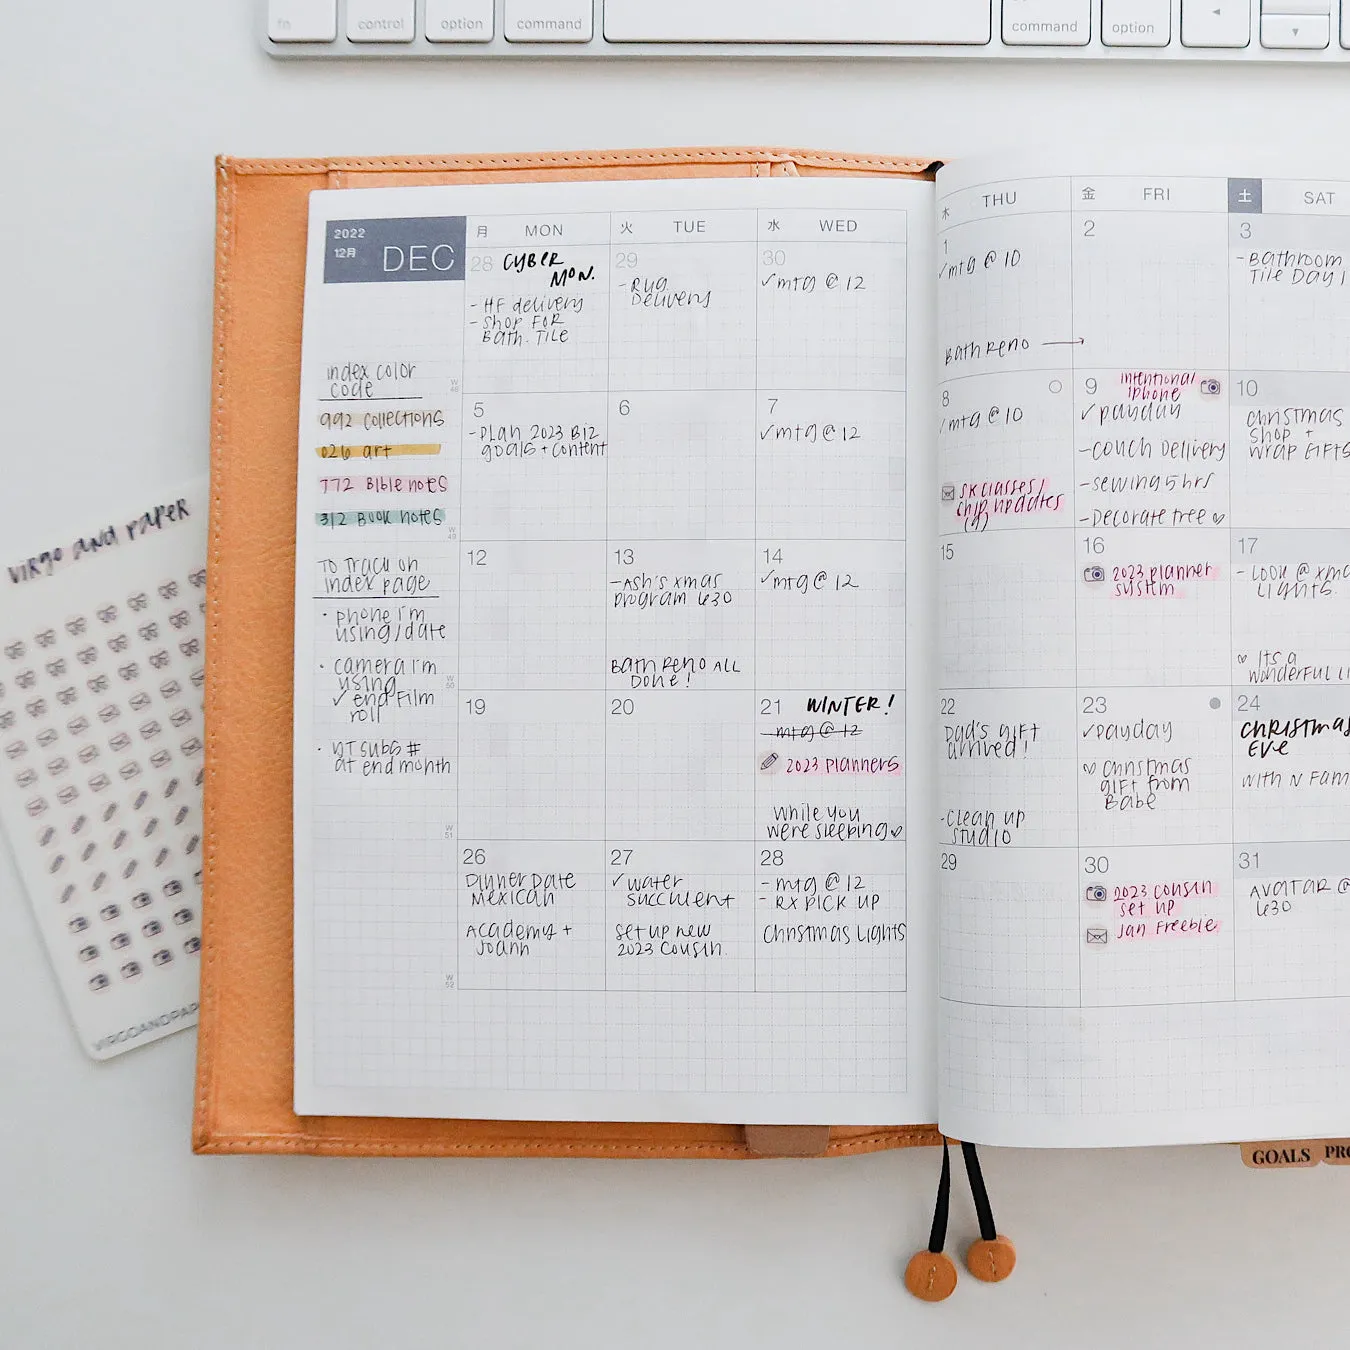 fn
control
option
command
command
option
2022
12月
DEC
月 MON
火 TUE
水 WED
木 THU
金 FRI
土 SAT
28 CYBER
MON.
- HF delivery
- SHOP FOR
Bath. TILE
29
- RUG
Delivery
30
✓mtg @ 12
1
✓mtg @ 10
Bath Reno →
2
3
- Bathroom
Tile Day 1
index color
code
992 collections
026 art
772 Bible notes
312 Book notes
W
48
5
- Plan 2023 BIZ
goals + content
6
7
✓mtg @ 12
8
✓mtg @ 10
SK classes/
ship updates
9
intentional
iphone
✓payday
- couch delivery
- sewing 5 hrs
- Decorate tree ♡
10
christmas
shop +
wrap gifts
W
49
To Track on
index page
• phone i'm
using/date
• camera i'm
using
✓ end film
roll
• YT subs #
at end month
12
13
- Ash's xmas
program 630
Bath Reno ALL
Done!
14
✓mtg @ 12
15
16
2023 planner
system
17
- Look @ xma
lights.
♡ It's a
wonderful li
W
50
19
20
21 WINTER!
- mtg @ 12
2023 planners
While you
were sleeping ♡
22
Dad's gift
arrived!
- clean up
studio
23
✓payday
♡ christmas
gift from
Babe
24
CHRISTMAS
EVE
with N Fam
W
51
26
Dinner Date
Mexican
Academy +
Joann
27
✓ water
succulent
set up new
2023 cousin.
28
- mtg @ 12
- RX pick up
Christmas Lights
29
30
2023 cousin
set up
Jan Freebie
31
AVATAR @
630
W
52
VIRGO AND PAPER
VIRGOANDPAP
GOALS
PRO